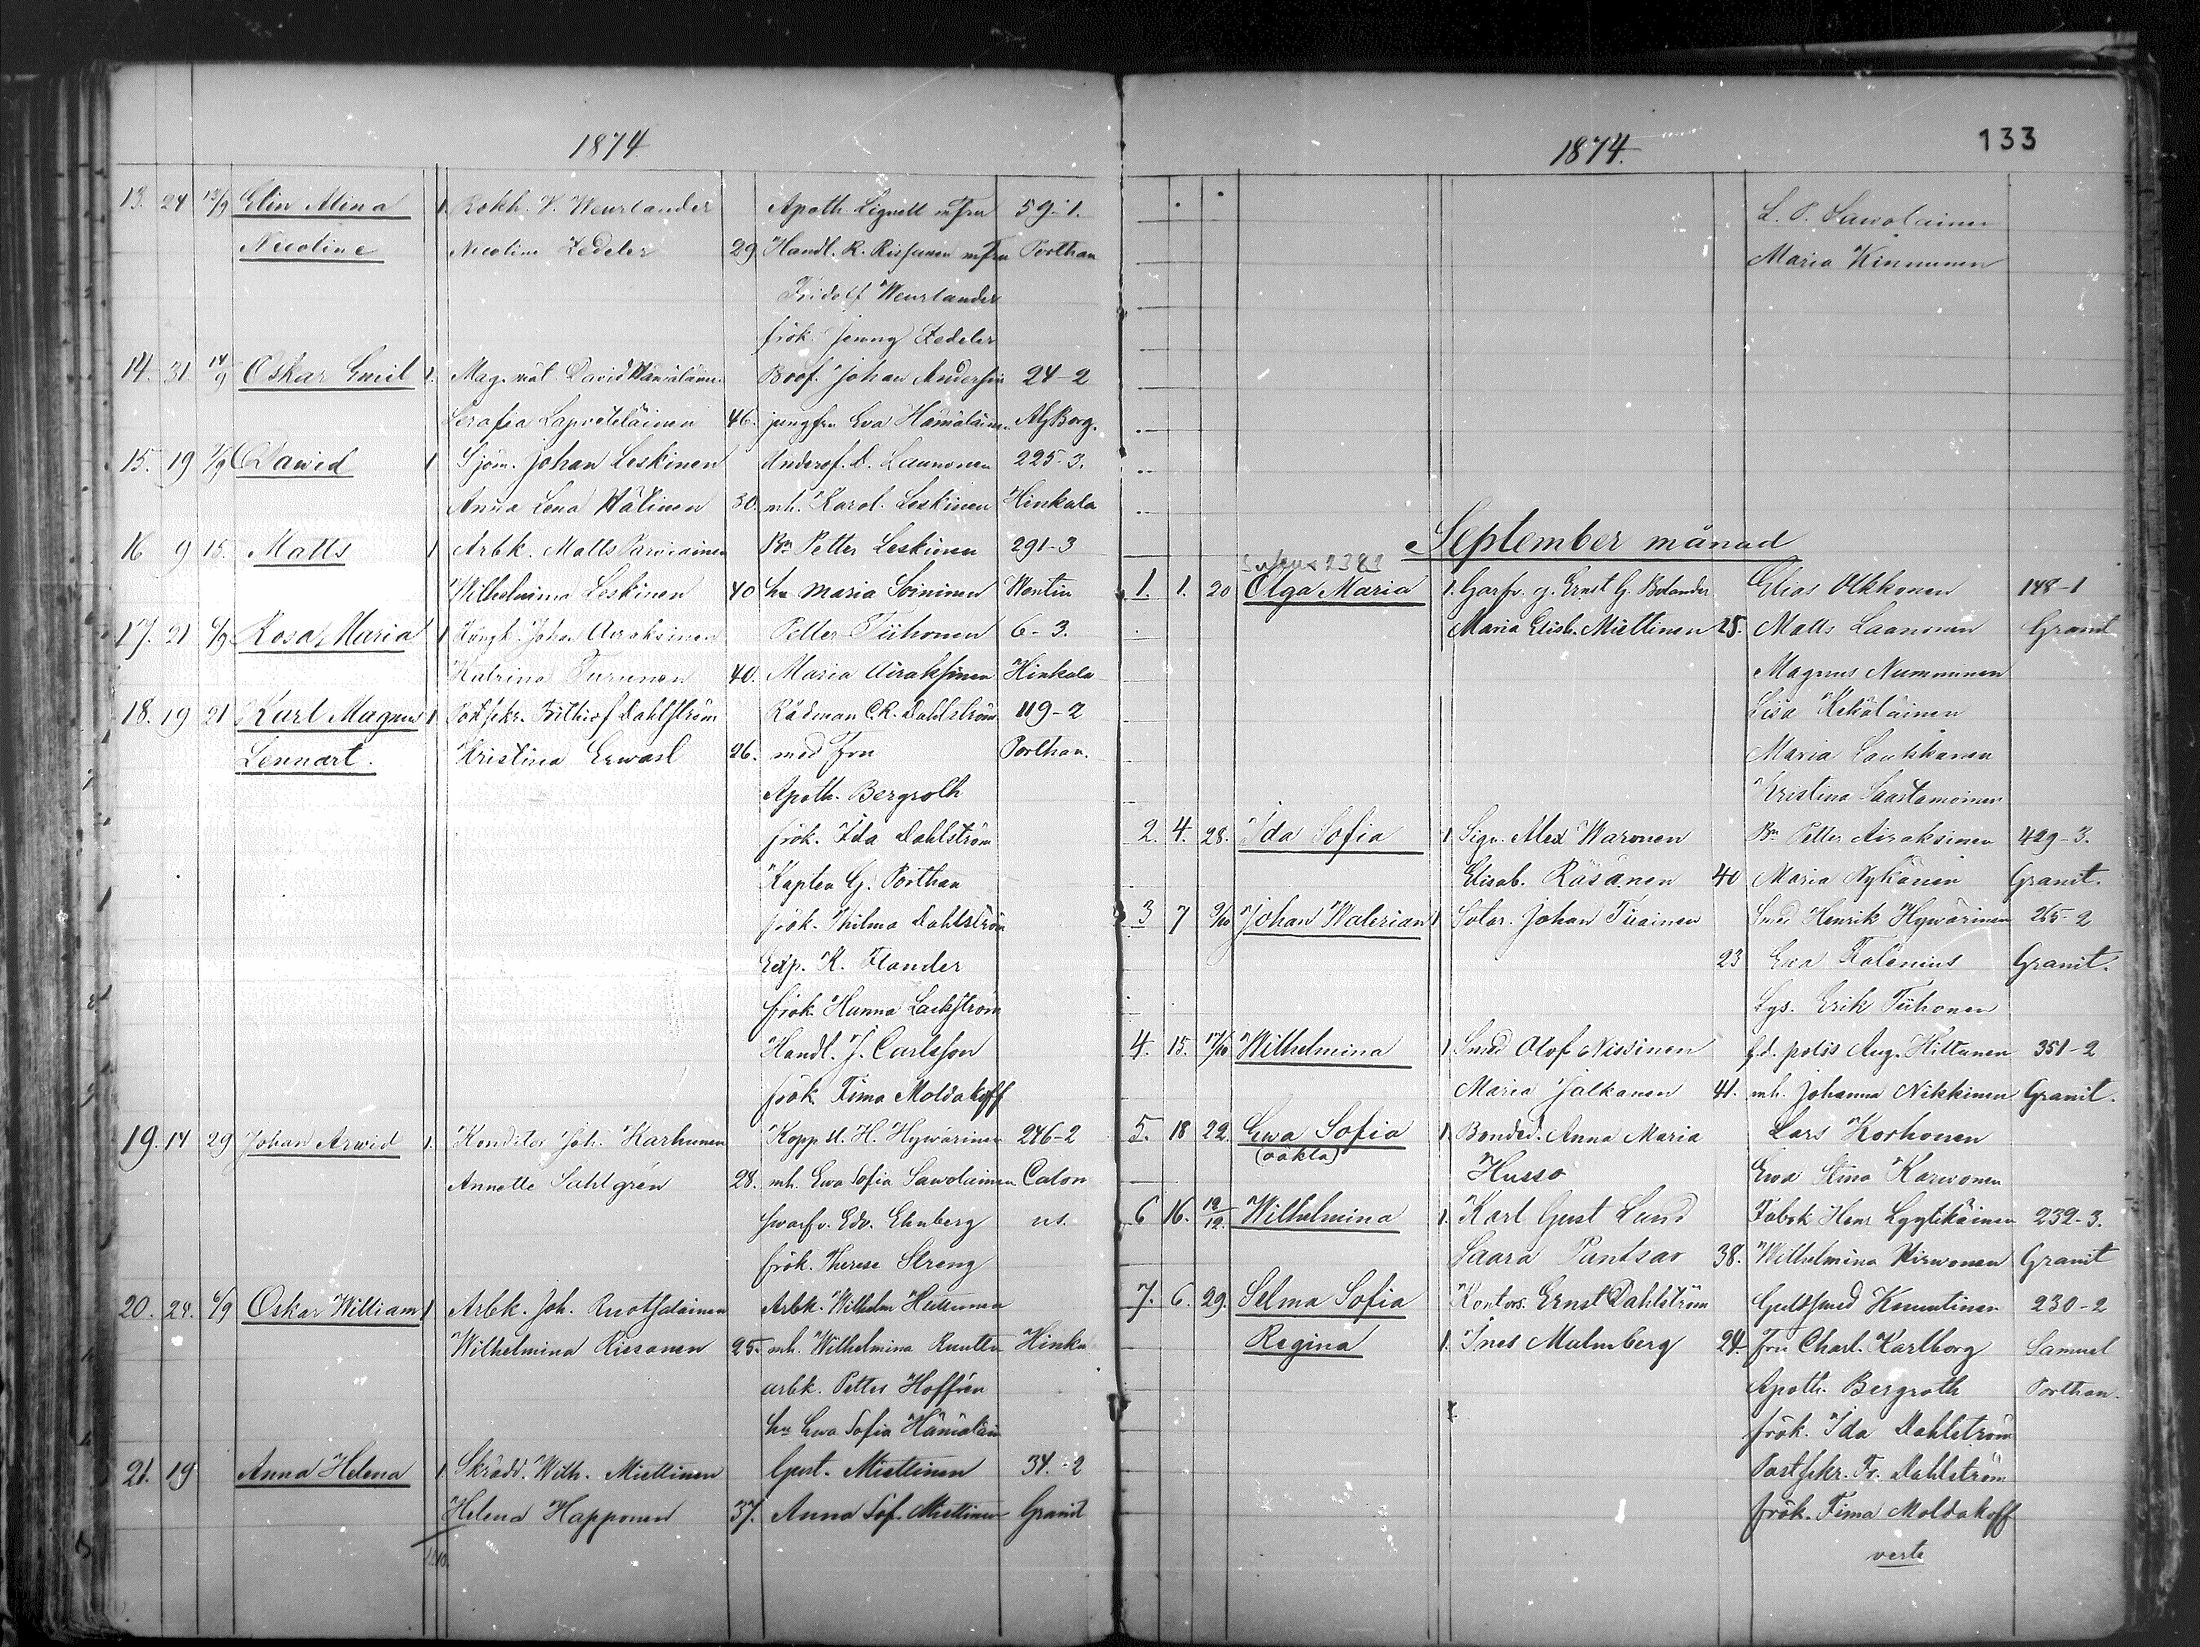 1874
13. 24 13/9 Elin Alina 1. Rokh. V. Weurlander Apoth. Lignell m fru 59-1.
Nicoline Nicoline Zedeler 29. Handl. R. Rissanen m fru Porthan
Fridolf Weurlander
frök. Jenny Zedeler
14. 31. 14/9 Oskar Emil 1. David Hämäläinen Johan Andersin 24-2
Serafia Lapveteläinen 46. jungfru Eva Hämäläinen Alf Borg.
15. 19 Dawid 1 Sjöm. Johan Leskinen Underof. D. Laanonen 225-3.
Anna Lena Hätinen 30. mh. Karol. Leskinen Hinkala
16 9 15. Matts 1 Arbk. Matts Parviainen Bn Petter Leskinen 291-3
Wilhelmina Leskinen 40 hu Maria Soininen Wentin
17. 21 6/9 Rosa Maria 1 Johan Airaksinen Petter Tiihonen 6-3.
Katrina Turunen 40. Maria Airaksinen Hinkala
18. 19 21 Karl Magnus 1 Postsekr. Frithiof Dahlström Rådman C.R. Dahlström 119-2
Lennart. Kristina Erwast 26. med fru Porthan.
Apoth. Bergroth
frök. Ida Dahlström
Kapten G. Porthan
frök. Hilma Dahlström
Exp. K. Flander
frök. Hanna Lackström
Handl. J. Carlsson
frök. Fima Moldakoff
19. 14 29 Johan Arwid 1. Konditor Joh. Karhunen Kopp sl. H. Hyvärinen 246-2
Annette Sahlgrén 28. mh. Ewa Sofia Sawolainen Calon
Swarfv. Edv. Ehnberg us.
frök. Therese Streng
20. 24. 6/9 Oskar William 1 Arbk. Joh. Ruotsalainen Arbk. Wilhelm Huttunen
Wilhelmina Riesanen 25. mh. Wilhelmina Hinka
arbk. Petter Hoffrén
hu Ewa Sofia Hämäläin
21. 19 Anna Helena 1. Skrädd. Wilh. Miettinen Gust. Miettinen 34.-2
Helena Happonen 37. Anna Sof. Miettinen Granit
1874. 133
L. P. Sawolainen
Maria Kinnunen
September månad
1. 1. 20 Olga Maria 1. Garfv. g. Ernst G. Bolander Elias Olkkonen 148-1
Maria Elisb. Miettinen 25. Matts Laanonen Granit
Magnus Nummunen
Lisa Kekäläinen
Maria Lautikanen
Kristina Saastamoinen
2. 4. 28. Ida Sofia 1 Sign. Alex Waronen Bn Petter Airaksinen 429-3.
Elisab. Räsänen 40 Maria Nykänen Granit.
3 7 9/10 Johan Walerian 1 Soldr. Johan Tiainen Smed Henrik Hyvärinen 265-2
23 Eva Granit.
Lgs. Erik Tiihonen
4. 15. 17/10 Wilhelmina 1 Smed Olof Nissinen f.d. polis Aug. Hiltunen 351-2
Maria Jalkanen 41. mh. Johanna Nikkinen Granit.
5. 18 22. Ewa Sofia 1 Bonded. Anna Maria Lars Korhonen
(oäkta) Husso Ewa Stina Karwonen
6 16. 12/12. Wilhelmina 1. Karl Gust Lund Fabrk Henr Lyytikäinen 232-3.
Saara Puntsar 38. Wilhelmina Hirwonen Granit
7. 6. 29. Selma Sofia Kontors. Ernst Dahlström Guldsmed Knuutinen 230-2
Regina 1. Ines Malmberg 24. Fru Charl. Karlborg Samuel
Apoth. Bergroth Porthan.
frök. Ida Dahlström
Postsekr. Fr. Dahlström
frök. Fima Moldakoff
verte